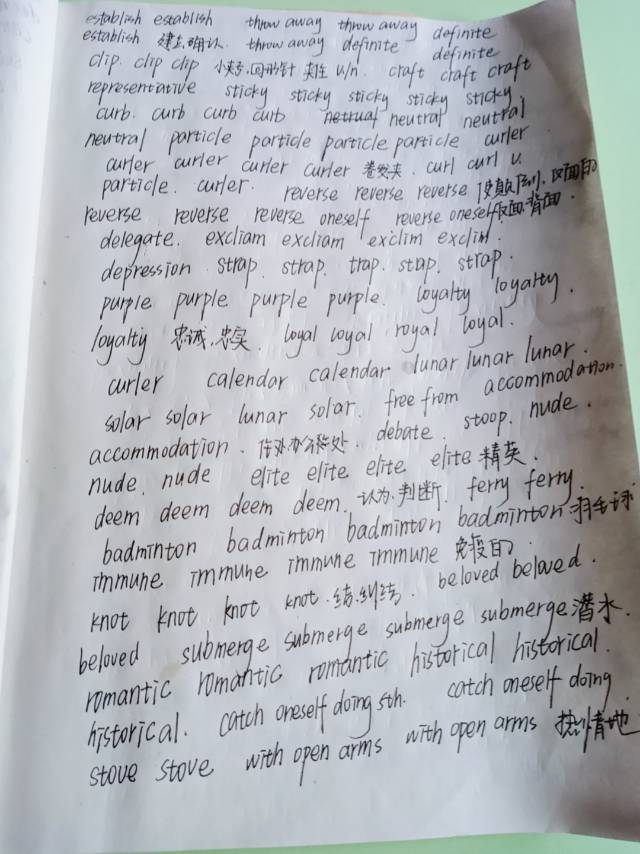 establish establish throw away throw away definite
establish 建立,确认. throw away definite definite
clip. clip clip 小夹子,回形针 夹住 v/n. craft craft craft
representiative sticky sticky sticky sticky sticky
curb. curb curb curb netrual neutral neutral
neutral particle particle particle particle curler
curler curler curler curler 卷发夹. curl curl v.
particle. curler. reverse reverse reverse 反面的
reverse reverse reverse oneself reverse oneself 反面.背面.
delegate. excliam excliam exclim exclim.
depression strap. strap. trap. stap. strap.
purple purple purple purple. loyalty loyalty.
loyalty 忠诚,忠实. loyal loyal royal loyal.
curler calendar calendar lunar lunar lunar.
solar solar lunar solar. free from accommodation.
accommodation. 住处 debate. stoop. nude.
nude. nude elite elite elite elite 精英.
deem deem deem deem. 认为.判断. ferry ferry.
badminton badminton badminton badminton 羽毛球
immune immune immune immune 免疫的.
knot knot knot knot.结.纠结. beloved beloved.
beloved submerge submerge submerge submerge 潜水.
romantic romantic romantic historical historical.
historical. catch oneself doing sth. catch oneself doing
stove stove with open arms with open arms 热情地